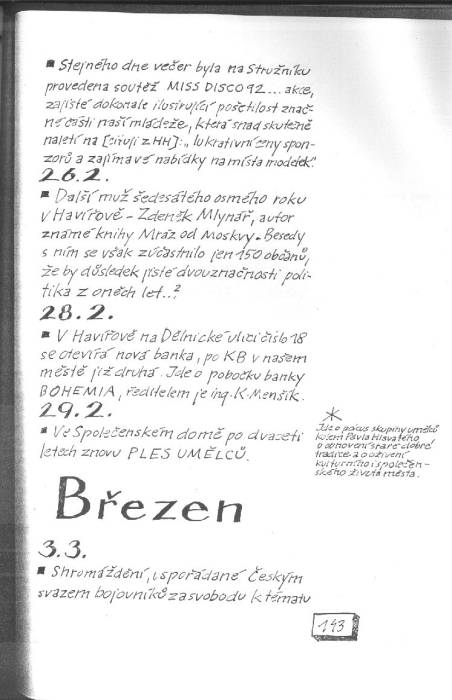 ■ Stejného dne večer byla na Stružníku
provedena soutěž MISS DISCO 92... akce,
zajisté dokonale ilustrující pošetilost znač-
né části naší mládeže, která snad skutečně
naletí na [cituji z HH]: „lukrativní ceny spon-
zorů a zajímavé nabídky na místa modelek".
26.2.
■ Další muž šedesátého osmého roku
v Havířově – Zdeněk Mlynář, autor
známé knihy Mráz od Moskvy. Besedy
s ním se však zúčastnilo jen 150 občanů,
že by důsledek jisté dvouznačnosti poli-
tika z oněch let..?
28.2.
■ V Havířově na Dělnické ulici číslo 18
se otevírá nová banka, po KB v našem
městě již druhá. Jde o pobočku banky
BOHEMIA, ředitelem je ing. K. Menšík.
29.2.
■ Ve Společenském domě po dvaceti
letech znovu PLES UMĚLCŮ.
*
Jde o pokus skupiny umělců
kolem Pavla Hlavatého
o obnovení staré dobré
tradice a o oživení
kulturního i společen-
ského života města.
Březen
3.3.
■ Shromáždění, uspořádané Českým
svazem bojovníků za svobodu k tématu
143